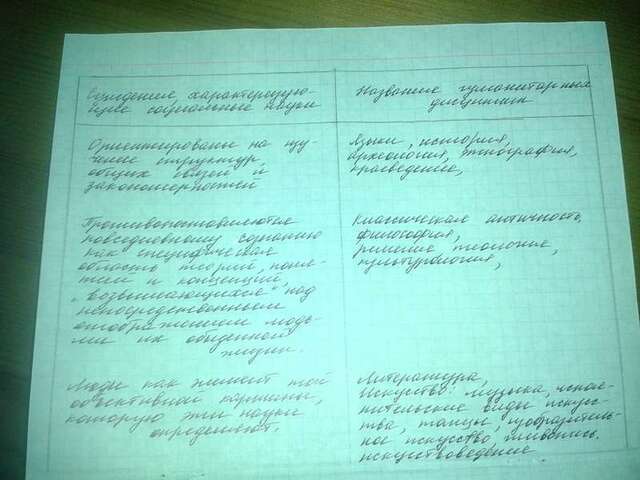 Сведения характеризую-
щие социальные науки
Название гуманитарных
дисциплин
Ориентированы на изу-
чение структур,
общих связей и
закономерностей
Языки, история,
археология, этнография,
краеведение,
Противопоставляются
повседневному сознанию
как специфическая
область теорий, поня-
тий и концепций,
"возвышающихся" над
непосредственным
отображением людь-
ми их обыденной
жизни.
Классическая античность,
философия,
религия теология,
культурология,
Люди как элемент той
объективной картины,
которую эти науки
определяют.
Литература,
Искусство: музыка, испол-
нительские виды искусс-
тва, танцы, изобразитель-
ное искусство, живопись.
искусствоведение